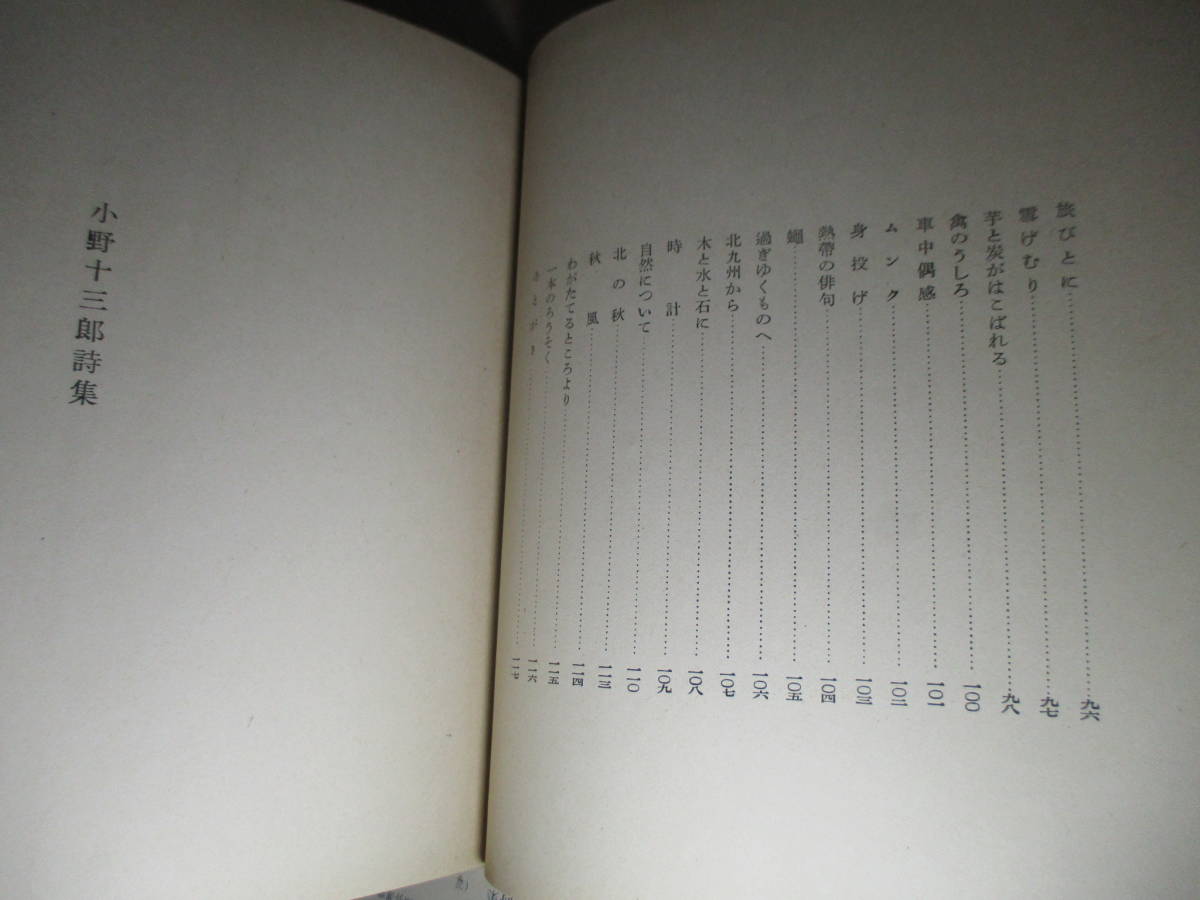 旅びとに……九六
雪げむり……九七
芋と炭がはこばれる……九八
禽のうしろ……一〇〇
車中偶感……一〇一
ムンク……一〇二
身投げ……一〇三
熱帯の俳句……一〇四
蠅……一〇五
過ぎゆくものへ……一〇六
北九州から……一〇七
木と水と石に……一〇八
時計……一〇九
自然について……一一〇
北の秋……一一三
秋風……一一四
わがたてるところより……一一五
一本のろうそく……一一六
あとがき……一一七
小野十三郎詩集